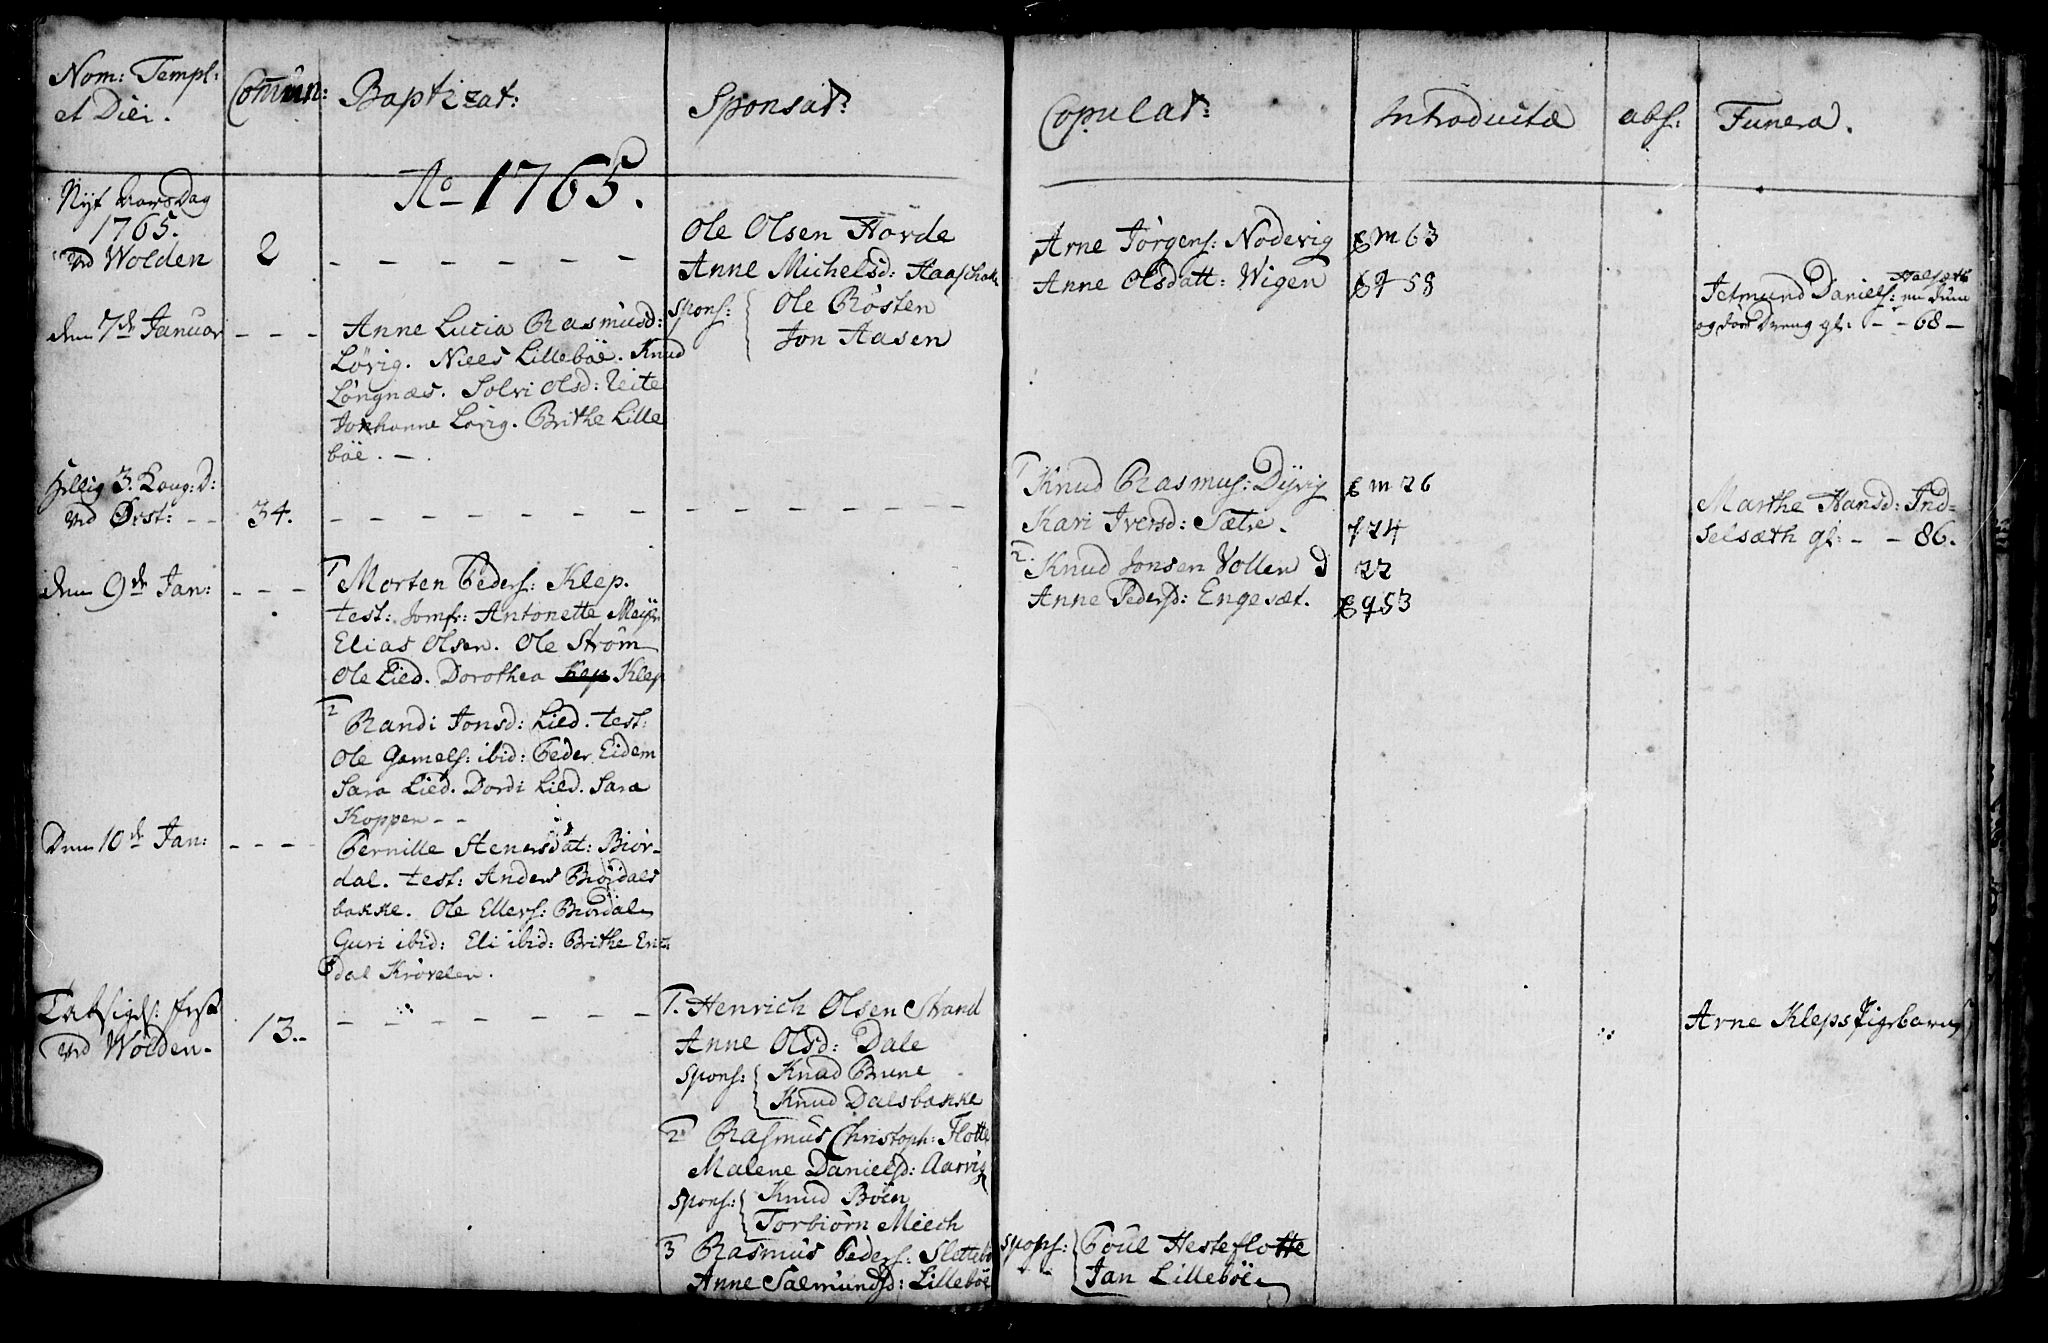 Nom: Templ:
et Diei.
Comun:
Baptizat:
Sponsat:
Copulat:
Introductæ
abs:
Funera.
Ao 1765.
Nyt Aars Dag
1765.
ved Wolden
2
Ole Olsen Hovde
Anne Michelsd:
spons: Ole Rösten
Jon Aasen
Arne Jörgens: Nodevig
Anne Olsdatt: Wigen
63
58
Halsæth
Jetmund Daniels: en dum
og döv Dreng gl: - - 68 -
den 7de Januar - - -
Anne Lucia Rasmusd:
Lövig. Niels Lilleböe. Knud
Löngnæs. Solvi Olsd: Leite
Johanne Lövig. Brithe Lille
böe. - .
Hellig 3 Kong: D:
ved Örst: - -
34.
1 Knud Rasmus: Dyvig
m 26
Kari Iversd: Sætre.
24
2 Knud Jonsen Vollen
22
Anne Pedersd: Engesæt.
53
Marthe Hansd: Ind=
selsæth gl: - - 86.
den 9de Jan: - - -
1 Morten Peders: Klep.
test: Jomfr: Antonette Meyer
Elias Olsen. Ole Ström
Ole Lied. Dorothea Klep
2 Randi Jonsd: Lied. test:
Ole Gamels: ibid: Peder Eidem
Sara Lied. Dordi Lied. Sara
Koppen - -
Den 10de Jan: - - -
Pernille Stenersdat: Biör-
dal. test: Anders Biördals
bakke. Ole Ellers: Biördal
Guri ibid: Eli ibid: Brithe
dal Krövelen.
ved Wolden.
13.
1. Henrich Olsen Strand
Anne Olsd: Dale
spons: Knud Brune
Knud Dalsbakke
2 Rasmus Christoph: Flotte
Malene Danielsd: Aarvig
spons: Knud Böen
Torbiörn Miech
3 Rasmus Peders: Slettebö
Anne Salmundsd: Lilleböe
spons: Poul Hesteflotte
Jan Lilleböe
Arne Kleps Pigebarn